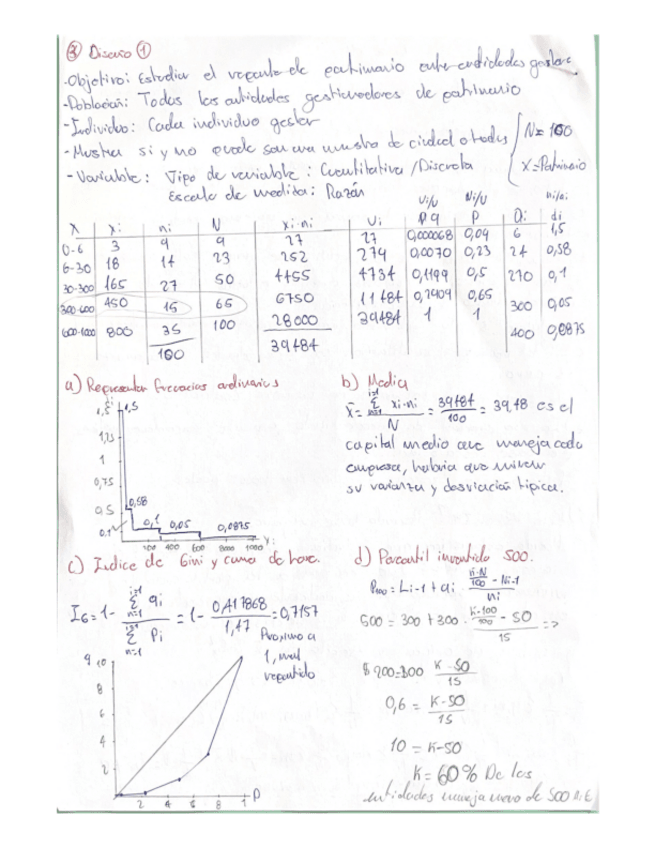 ③ Diseño ①
-Objetivo: Estudiar el reparto de patrimonio entre entidades gestoras
-Población: Todas las entidades gestionadores de patrimonio
-Individuo: Cada individuo gestor
-Muestra si y no puede ser una muestra de ciudad o todas
-Variable: Tipo de variable: Cuantitativa / Discreta
Escala de medida: Razón
N= 100
X=Patrimonio
Ui/Un Ni/N ni/ai
X xi ni N xi·ni Ui q P ai di
0-6 3 9 9 27 27 0,000068 0,09 6 1,5
6-30 18 14 23 252 279 0,0070 0,23 24 0,58
30-300 165 27 50 4455 4734 0,1199 0,5 270 0,1
300-600 450 15 65 6750 11484 0,2909 0,65 300 0,05
600-1000 800 35 100 28000 39484 1 1 400 0,0875
100 39484
a) Representar frecuencias ordinarias
1,5 1,5
1,25
1
0,75
0,5 0,58
0,1 0,1 0,05 0,0875
200 400 600 8000 1000 X
b) Media
x̄ = Σ xi·ni / N = 39484 / 100 = 39,48 es el
capital medio que maneja cada
empresa, habria que mirar
su varianza y desviación tipica.
c) Indice de Gini y curva de
IG = 1 - Σ qi / Σ Pi = 1 - 0,417868 / 1,47 = 0,7157
Proximo a
1, mal
repartido
q 10
8
6
4
2
2 4 6 8 1 P
d) Percentil invertido 500.
P100 = Li-1 + ai · (k·N/100 - Ni-1) / ni
500 = 300 + 300 · (k·100/100 - 50) / 15 =>
200=300 (K - 50) / 15
0,6 = (K - 50) / 15
10 = K-50
K = 60% De las
entidades maneja menos de 500 M.€